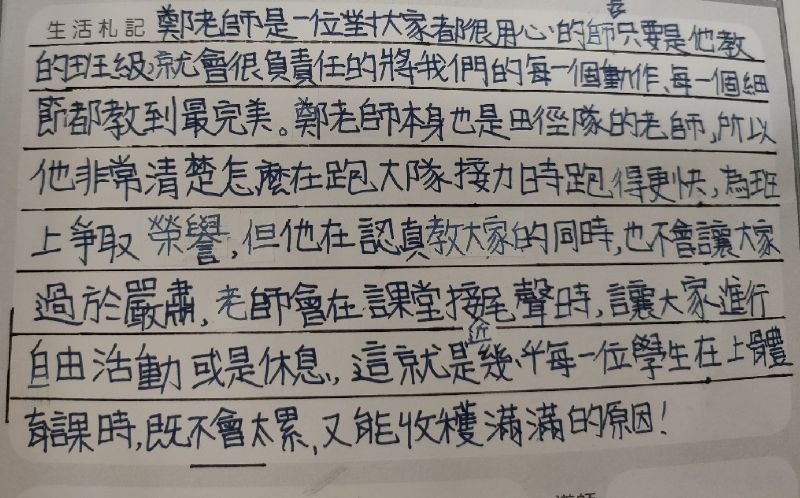 生活札記 鄭老師是一位對大家都很用心的師長只要是他教
的班級,就會很負責任的將我們的每一個動作、每一個細
節都教到最完美。鄭老師本身也是田徑隊的老師,所以
他非常清楚怎麼在跑大隊接力時跑得更快,為班
上爭取榮譽,但他在認真教大家的同時,也不會讓大家
過於嚴肅,老師會在課堂接近尾聲時,讓大家進行
自由活動或是休息,這就是幾乎每一位學生在上體
育課時,既不會太累,又能收穫滿滿的原因!